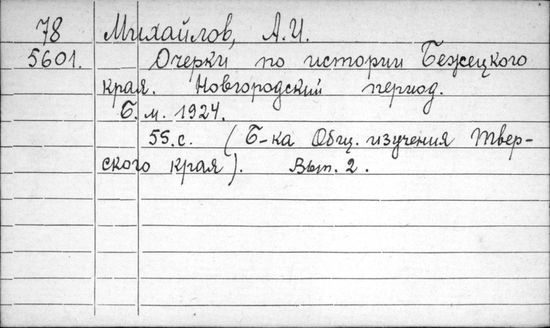 78 Михайлов, А.И.
5601. Очерки по истории Бежецкого
края. Новгородский период.
Б.м. 1924.
55.с. (Б-ка Общ. изучения Твер-
ского края). Вып. 2.